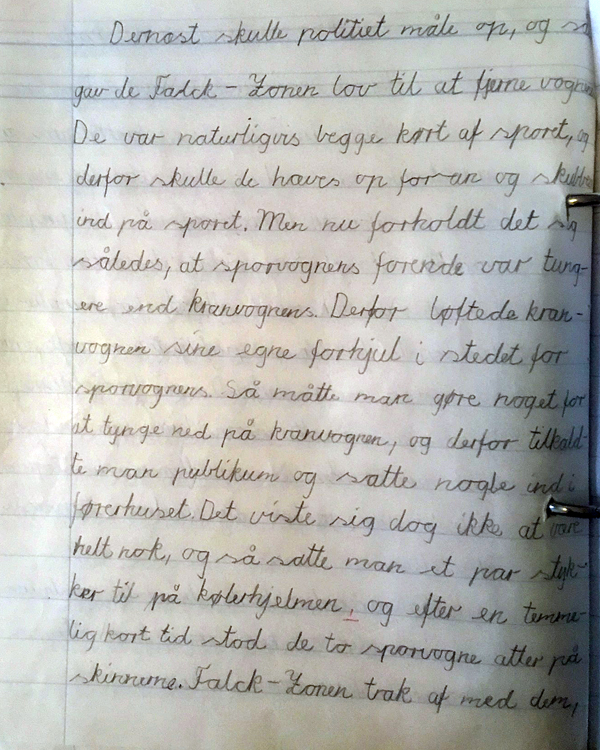 Dernæst skulle politiet måle op, og så
gav de Falck-Zonen lov til at fjerne vognene
De var naturligvis begge kørt af sporet, og
derfor skulle de hæves op foran og skubbes
ind på sporet. Men nu forholdt det sig
således, at sporvognens forende var tung-
ere end kranvognens. Derfor løftede kran-
vognen sine egne forhjul i stedet for
sporvognens. Så måtte man gøre noget for
at tynge ned på kranvognen, og derfor tilkald-
te man publikum og satte nogle ind i
førerhuset. Det viste sig dog ikke at være
helt nok, og så satte man et par styk-
ker til på kølerhjelmen, og efter en temme-
lig kort tid stod de to sporvogne atter på
skinnerne. Falck-Zonen trak af med dem,